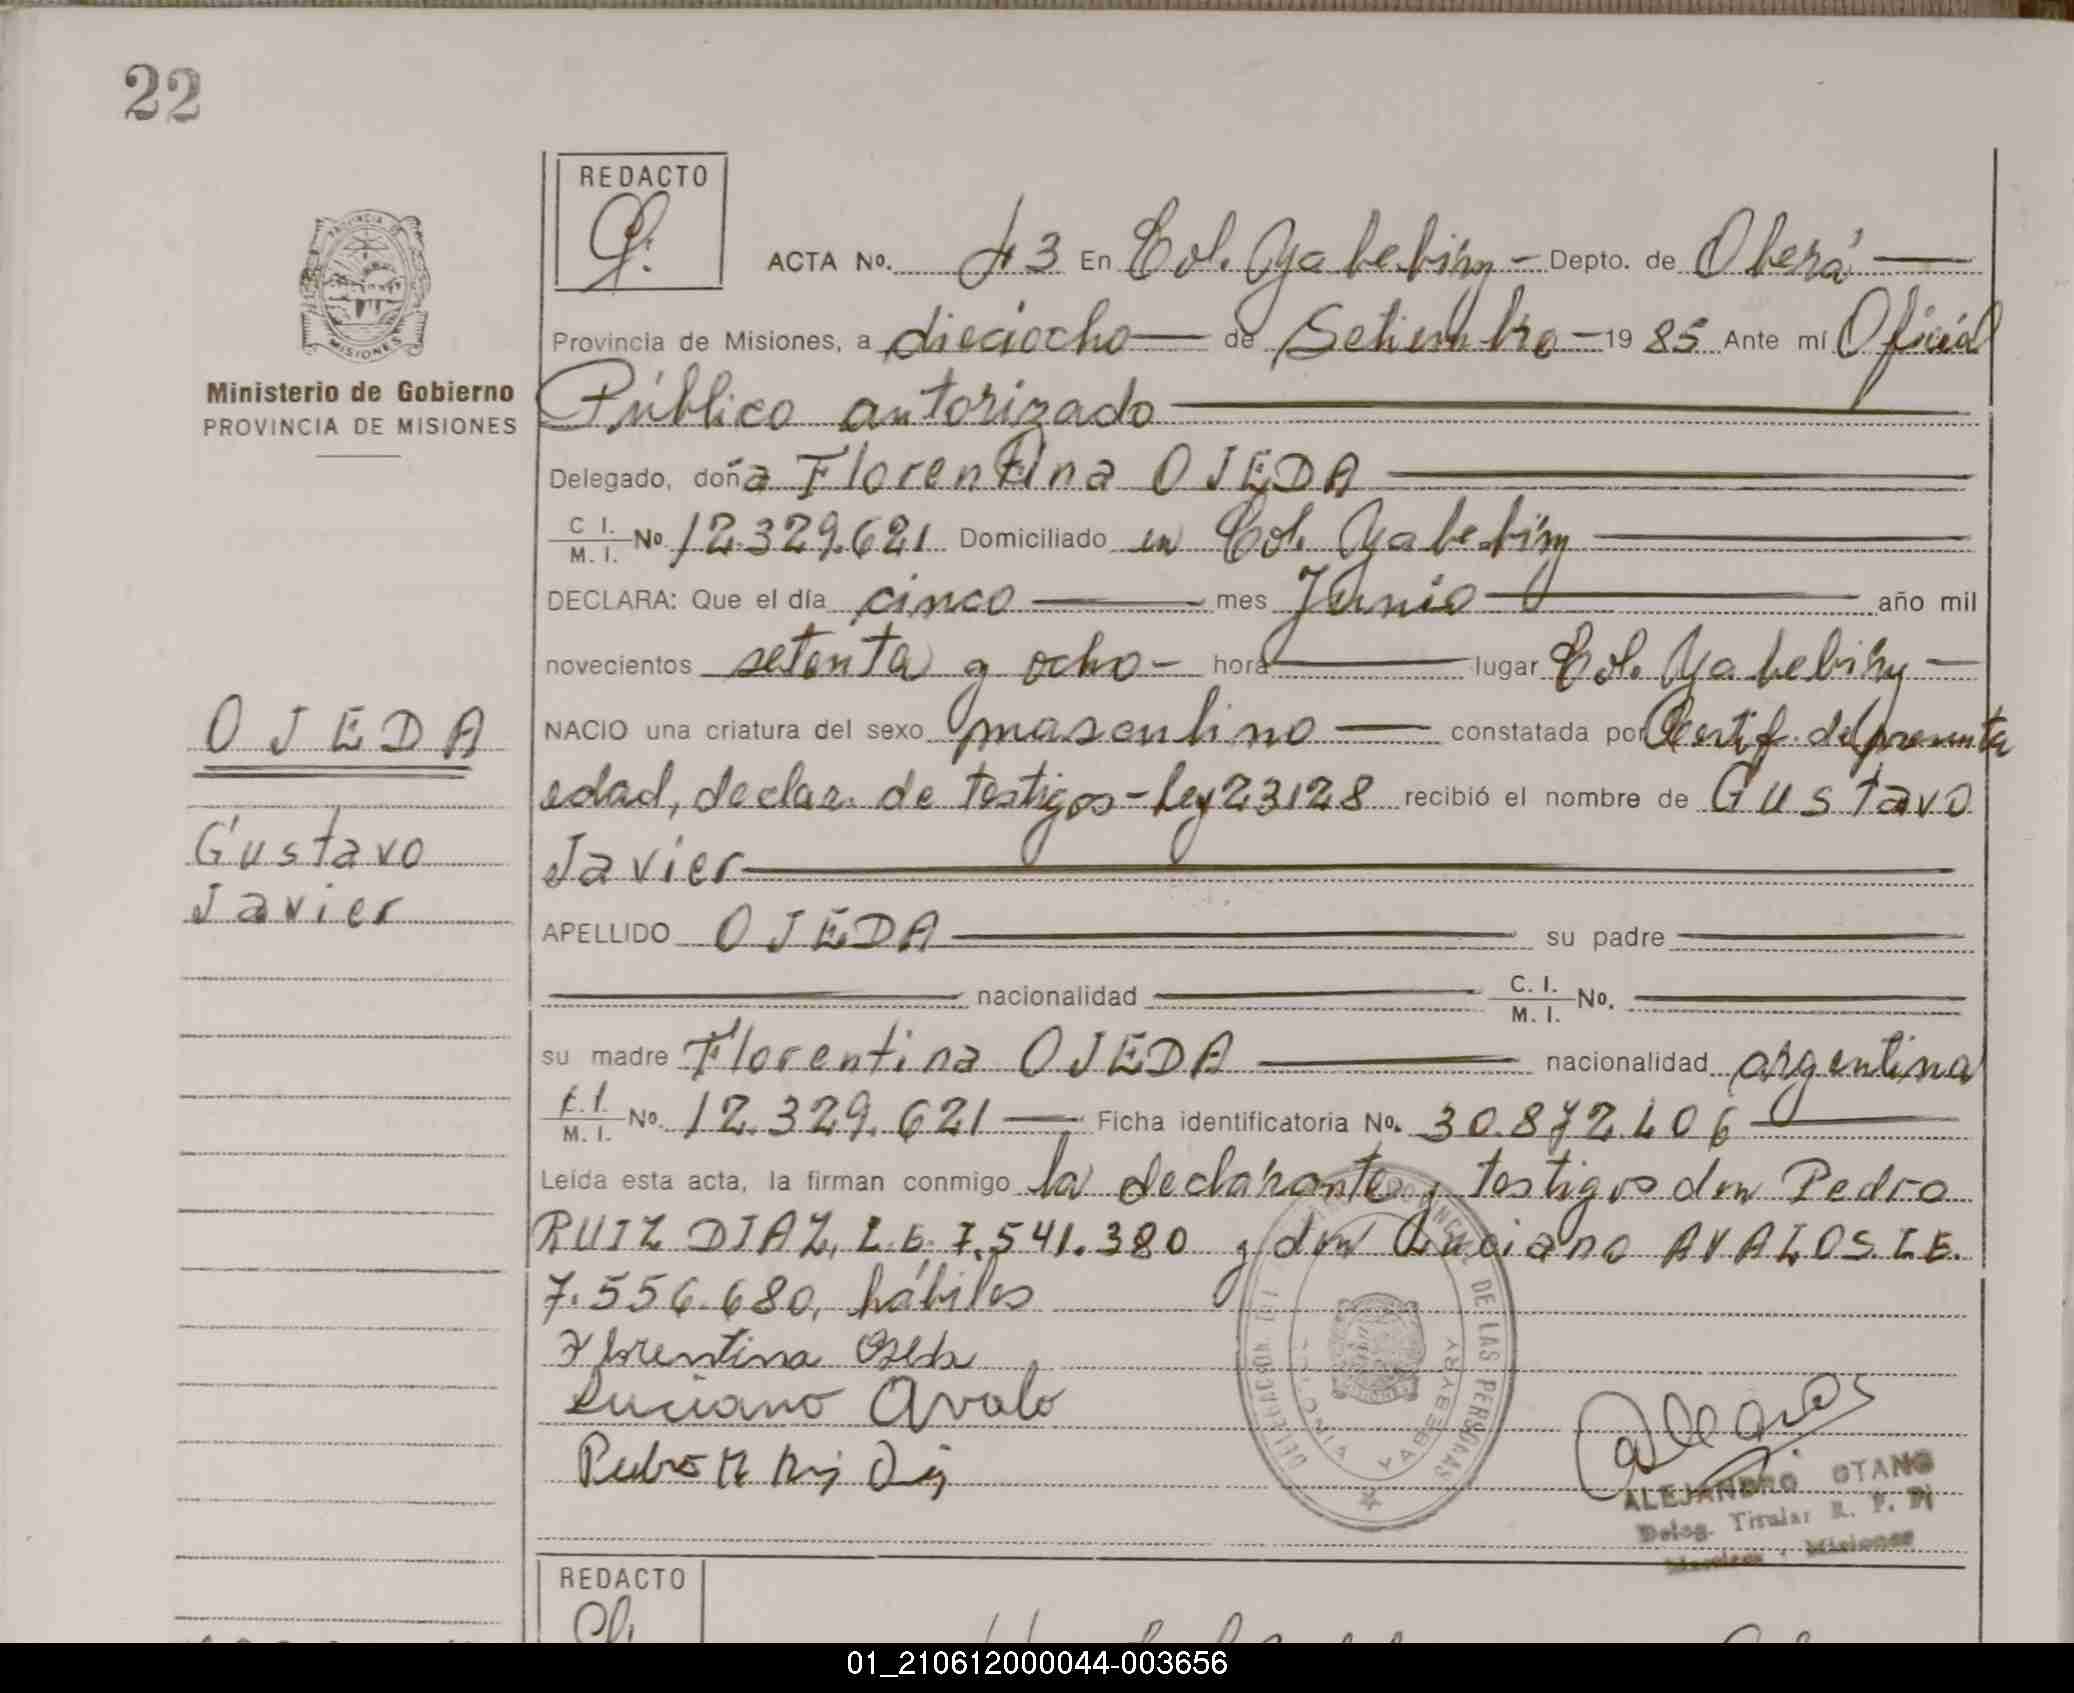 22
REDACTO
ACTA No. 43 En Col. Yabebiry - Depto. de Oberá
Provincia de Misiones, a dieciocho de Setiembre - 1985 Ante mí Oficial
Público autorizado
Delegado, doña Florentina OJEDA
C I. / M. I. No 12.329.621 Domiciliado en Col. Yabebiry
DECLARA: Que el día cinco mes Junio año mil
novecientos setenta y ocho - hora lugar Col. Yabebiry -
NACIO una criatura del sexo masculino constatada por Certif. de presunta
edad, declar. de testigos - Ley 23128 recibió el nombre de Gustavo
Javier
APELLIDO OJEDA su padre
nacionalidad C. I. / M. I. No.
su madre Florentina OJEDA nacionalidad argentina
C. I. / M. I. No. 12.329.621 Ficha identificatoria No. 30.872.406
Leída esta acta, la firman conmigo la declarante y testigos don Pedro
RUIZ DIAZ, L.E. 7.541.380 y don Luciano AVALOS L.E.
7.556.680, hábiles
Florentina Ojeda
Luciano Avalo
Pedro R Ruiz Diaz
PROVINCIA DE
MISIONES
Ministerio de Gobierno
PROVINCIA DE MISIONES
OJEDA
Gustavo
Javier
DE LAS PERSONAS
COLONIA YABEBYRY
ALEJANDRO OTANO
Deleg. Titular R. P. P.
Misiones
REDACTO
01_210612000044-003656